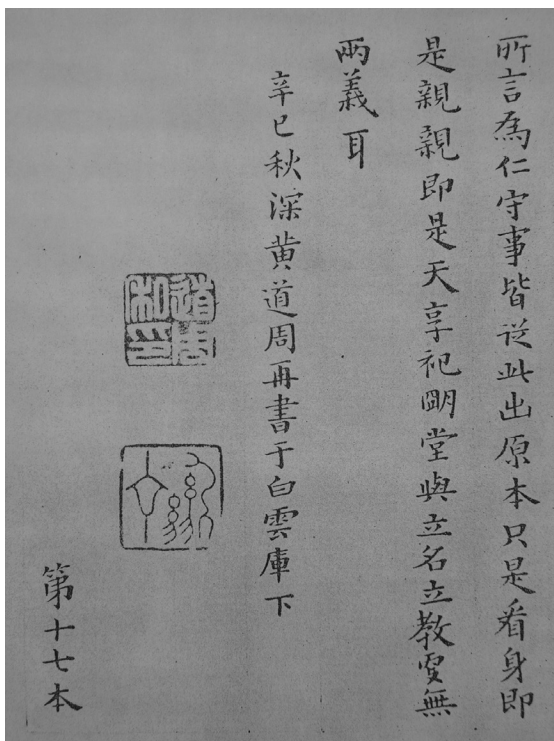 所言為仁守事皆從此出原本只是看身即
是親親即是天享祀朙堂與立名立教更無
兩義耳
辛巳秋深黃道周再書于白雲庫下
道周
私印
第十七本